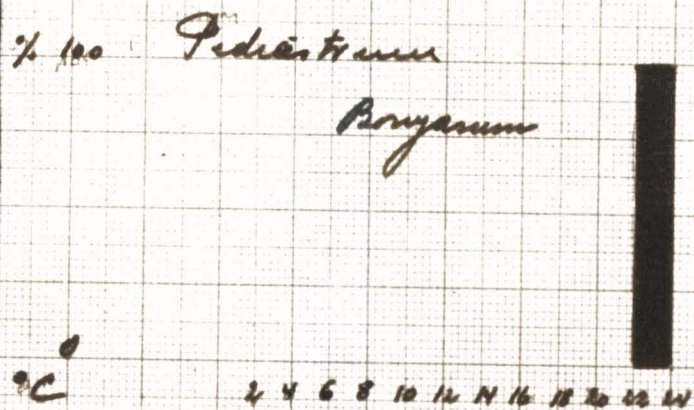 % 100 Pediastrum
Boryanum
0
°C 2 4 6 8 10 12 14 16 18 20 22 24